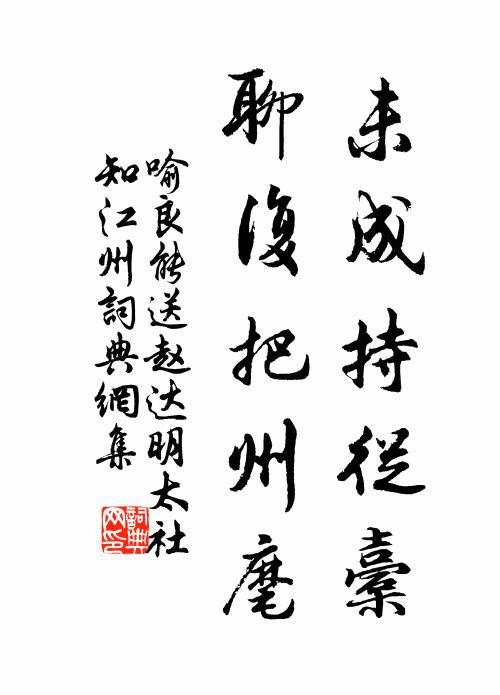 未成持從橐
聊復把州麾
喻良能送赵达明太社
知江州詞典網集
詞典網印